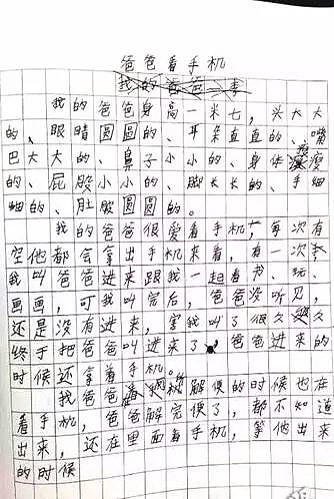 爸爸看手机
我的爸爸身高一米七，头大大
的、眼睛圆圆的、耳朵直直的、嘴
巴大大的、鼻子小小的、身体瘦瘦
的、屁股小小的、脚长长的、手细
细的、肚股圆圆的。
我的爸爸很爱看手机，每次有
空他都会拿出手机来看，有一次
我叫爸爸进来跟我一起看书、玩、
画画，可我叫完后，爸爸没听见，
还是没有进来，害我叫了很久
终于把爸爸叫进来了，爸爸进来的
时候还拿着手机。
我爸爸解便的时候也在
看手机，爸爸解完便了，都不知道
出来，还在里面看手机，等他出来
的时候